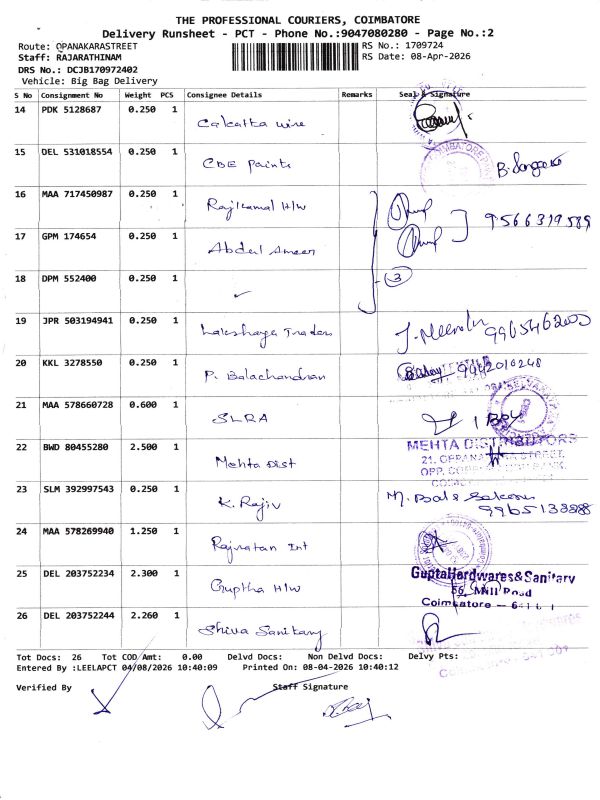 THE PROFESSIONAL COURIERS, COIMBATORE
Delivery Runsheet - PCT - Phone No.:9047080280 - Page No.:2
Route: OPANAKARASTREET
RS No.: 1709724
Staff: RAJARATHINAM
RS Date: 08-Apr-2026
DRS No.: DCJB170972402
Vehicle: Big Bag Delivery
S No Consignment No Weight PCS Consignee Details Remarks Seal & Signature
14 PDK 5128687 0.250 1 Calcatta wire
15 DEL 531018554 0.250 1 CBE Paints
16 MAA 717450987 0.250 1 Rajkamal H/W 9566319589
17 GPM 174654 0.250 1 Abdul Ameer
18 DPM 552400 0.250 1 ✓ 3
19 JPR 503194941 0.250 1 Lakshaya Traders
20 KKL 3278550 0.250 1 P. Balachandran 9442016248
21 MAA 578660728 0.600 1 SLRA
22 BWD 80455280 2.500 1 Mehta Dist
MEHTA DISTRIBUTORS
23 SLM 392997543 0.250 1 K. Rajiv
24 MAA 578269940 1.250 1 Rajratan Int
25 DEL 203752234 2.300 1 Guptha H/W
GuptaHardwares&Sanitary
56, Mill Road
Coimbatore
26 DEL 203752244 2.260 1 Shiva Sanitary
Tot Docs: 26 Tot COD Amt: 0.00 Delvd Docs: Non Delvd Docs: Delvy Pts:
Entered By :LEELAPCT 04/08/2026 10:40:09 Printed On: 08-04-2026 10:40:12
Verified By Staff Signature